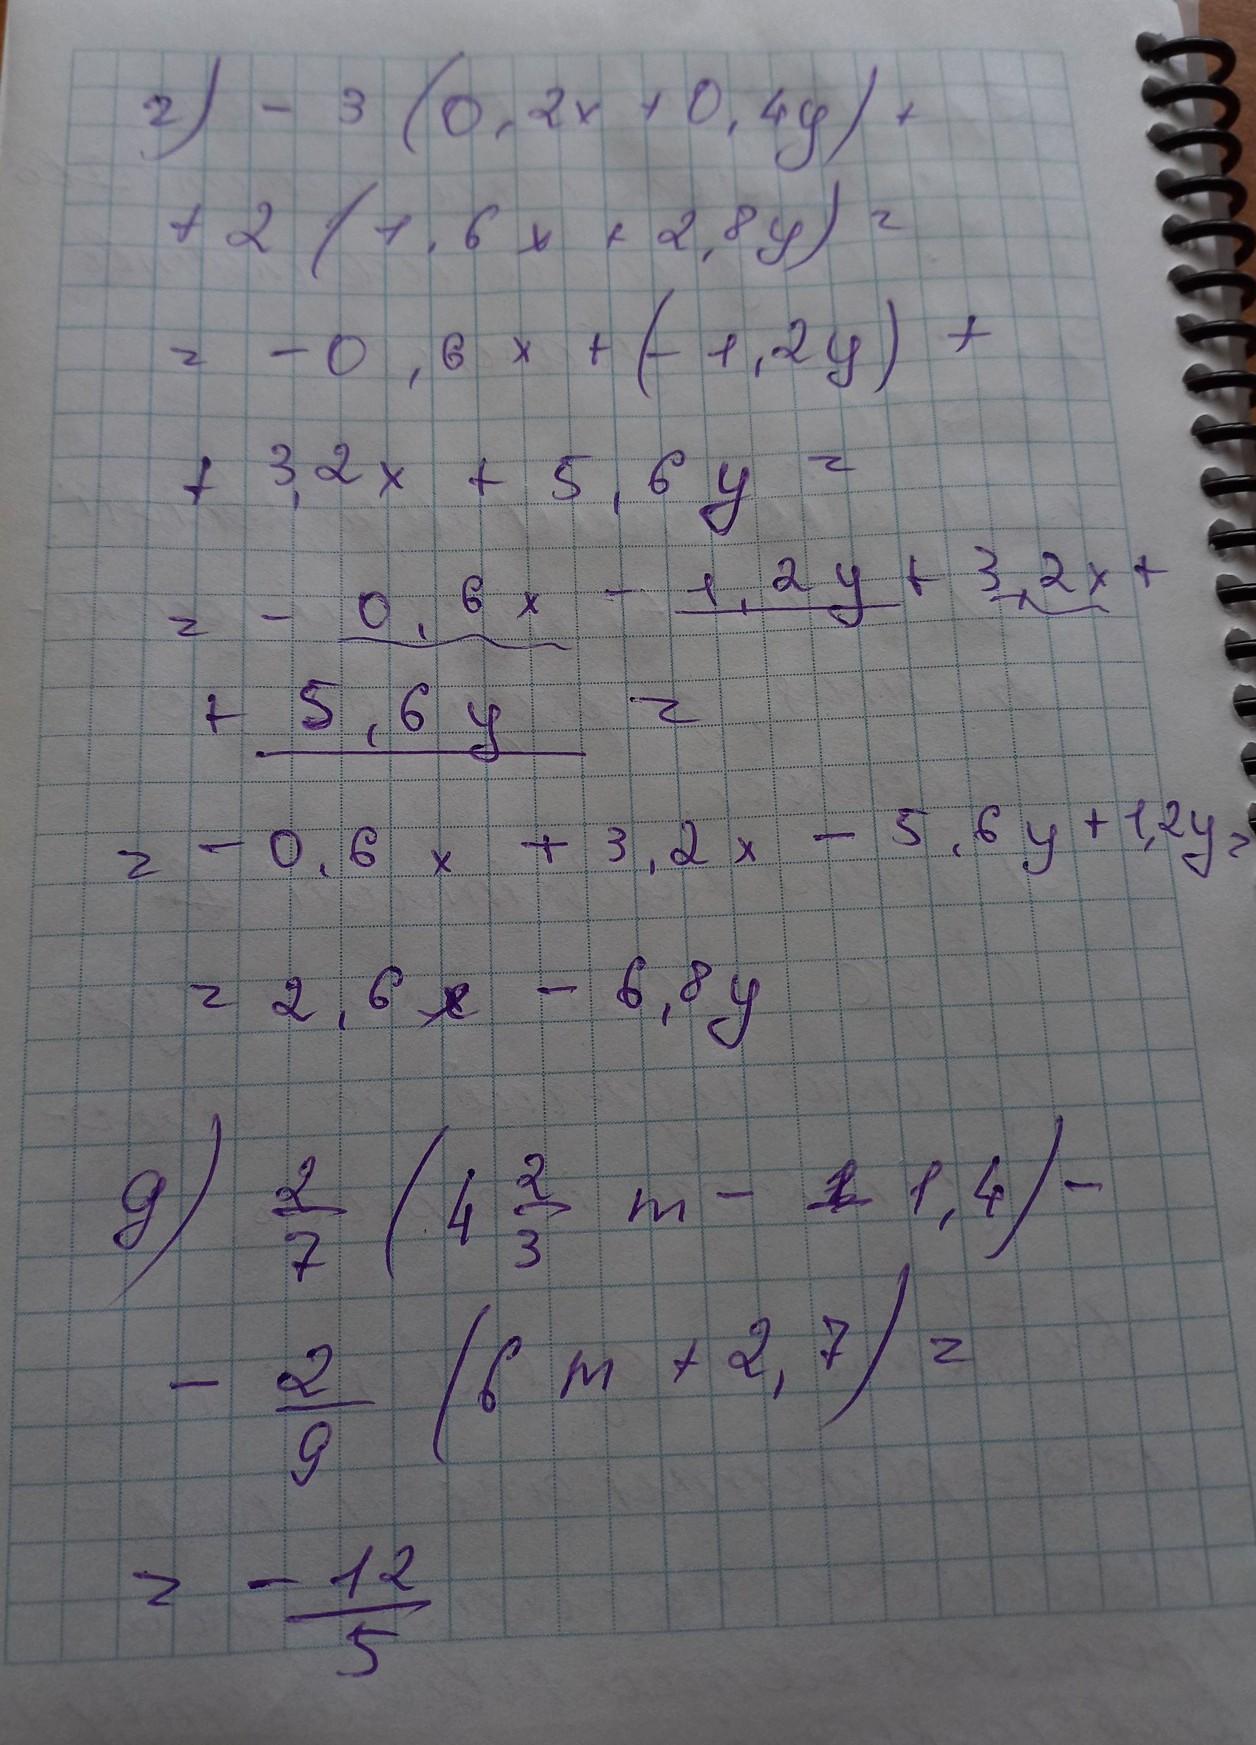 г) - 3 (0,2x + 0,4y) +
+ 2 (1,6x + 2,8y) =
= - 0,6x + (- 1,2y) +
+ 3,2x + 5,6y =
= - 0,6x - 1,2y + 3,2x +
+ 5,6y =
= - 0,6x + 3,2x - 5,6y + 1,2y =
= 2,6x - 6,8y
g) 2/7 (4 2/3 m - 1,4) -
- 2/9 (6m + 2,7) =
= - 12/5